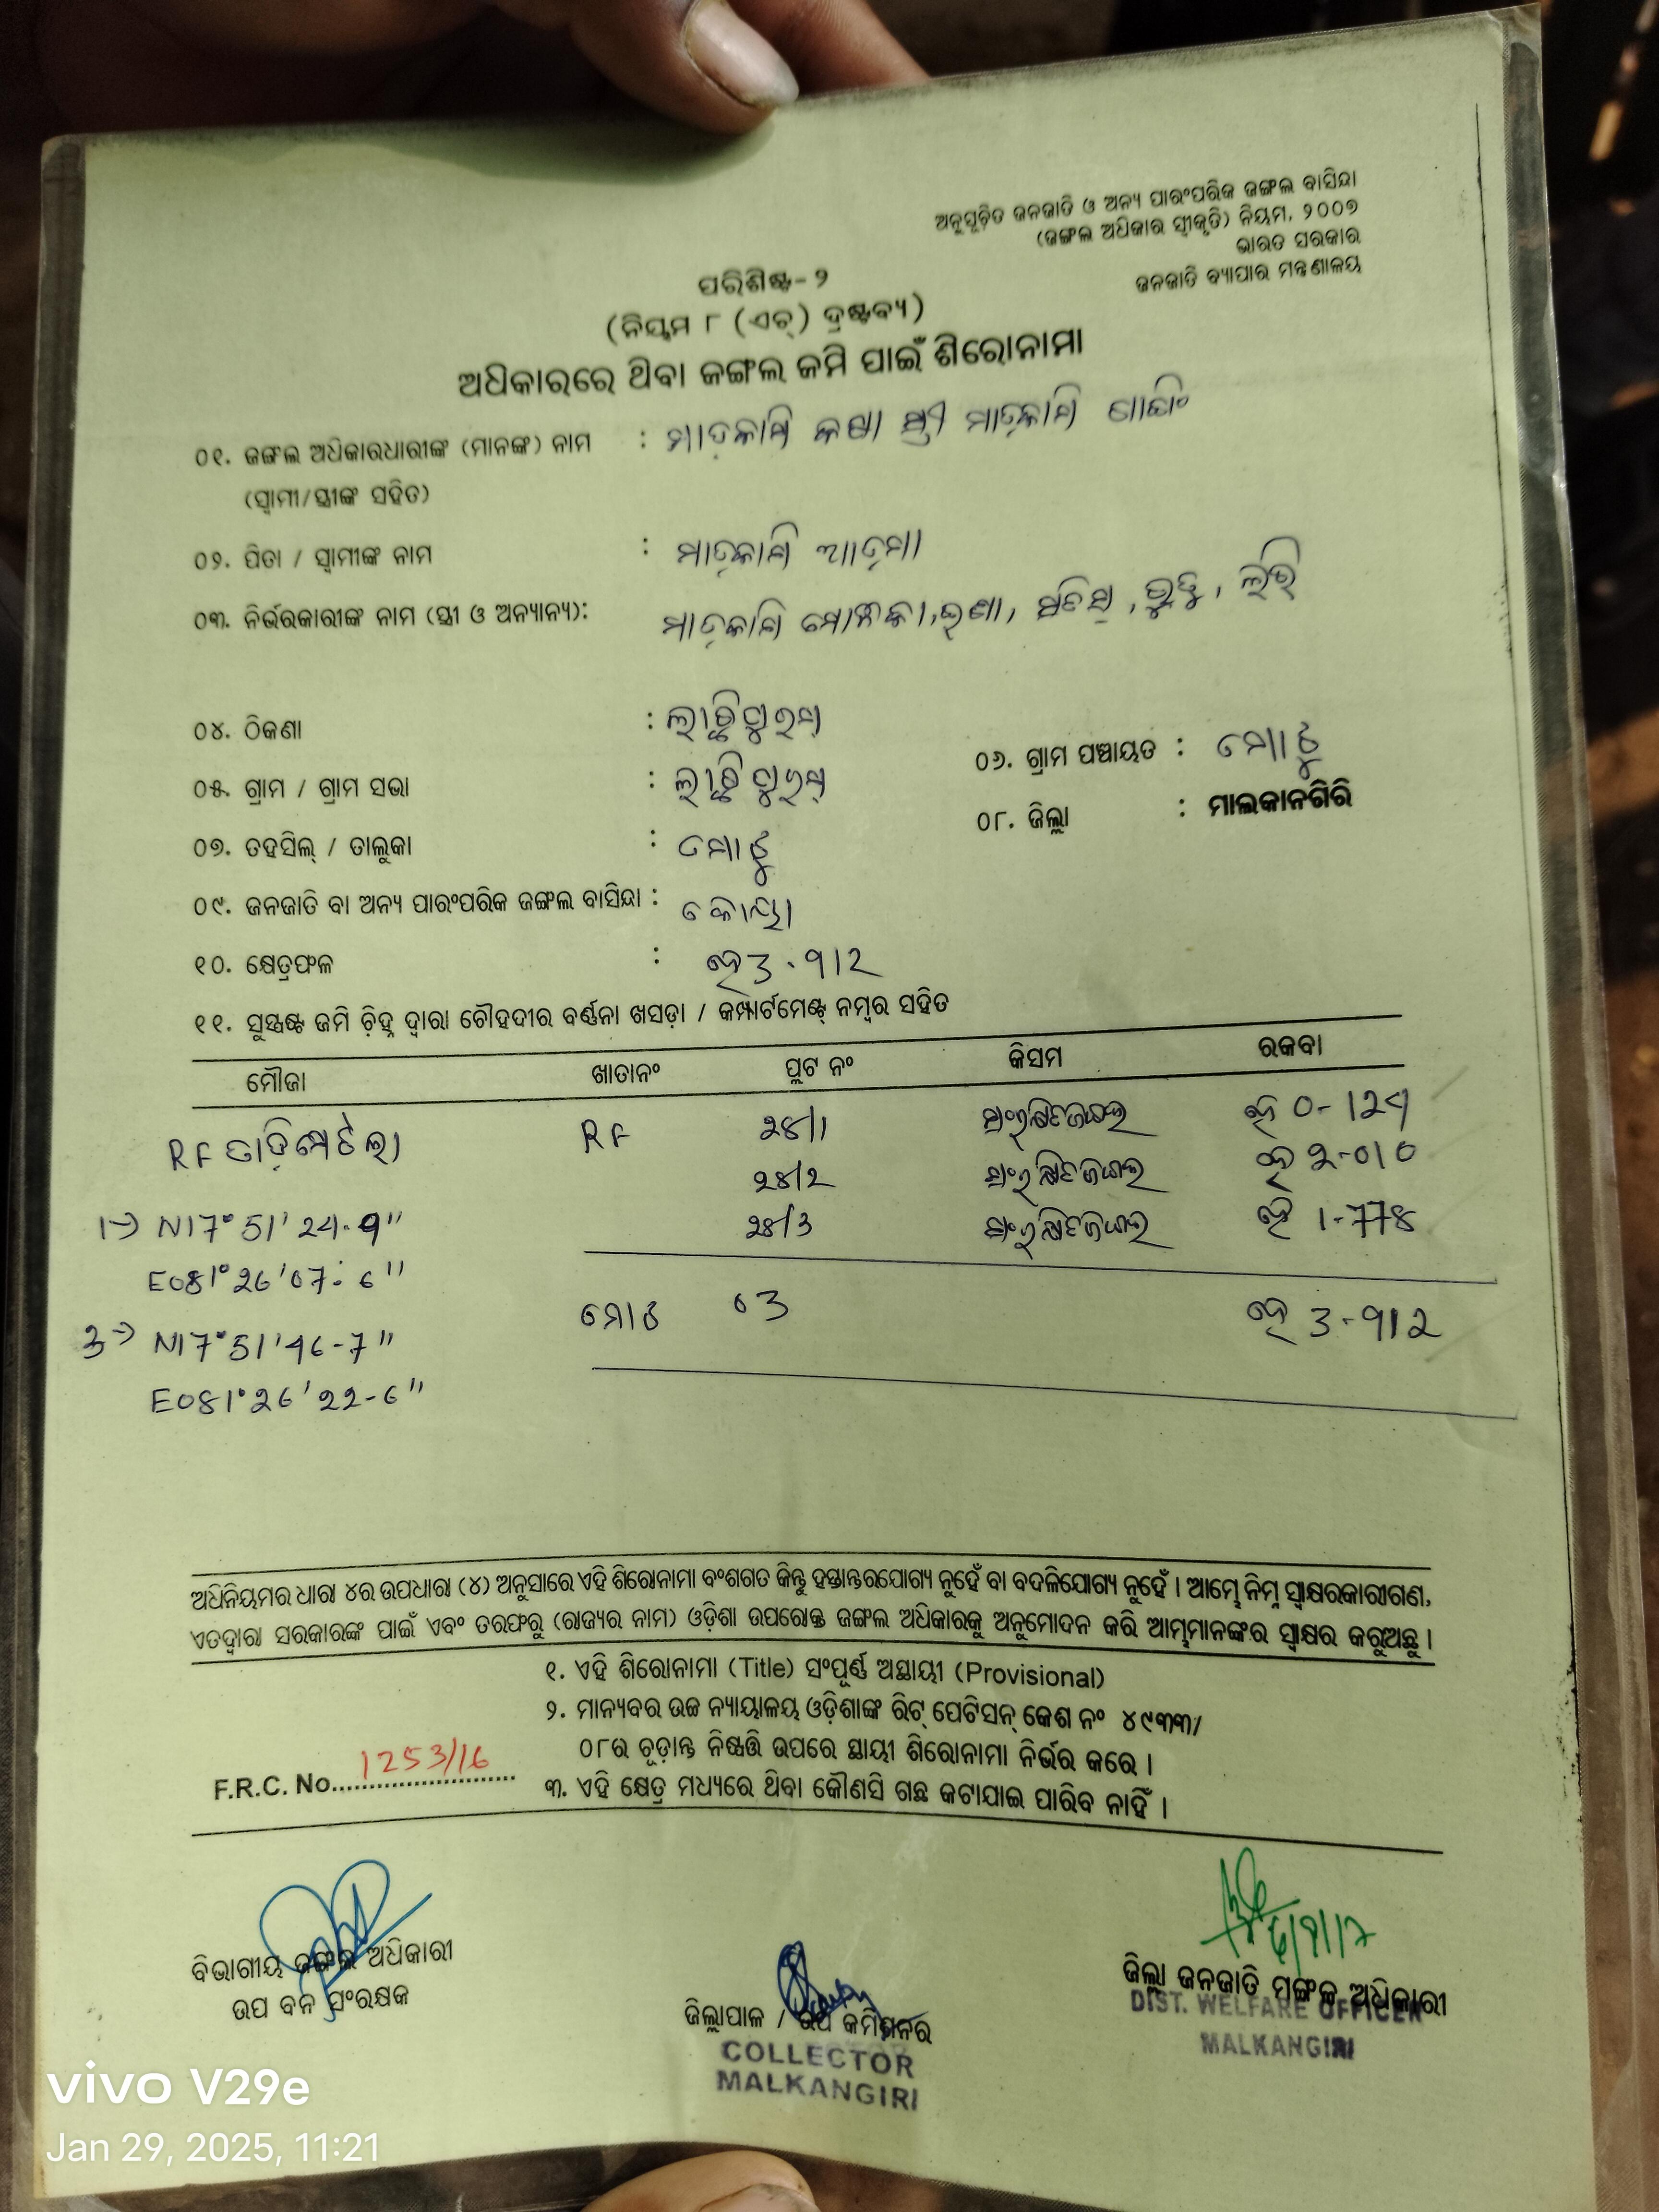 ଅନୁସୂଚିତ ଜନଜାତି ଓ ଅନ୍ୟ ପାରଂପରିକ ଜଙ୍ଗଲ ବାସିନ୍ଦା
(ଜଙ୍ଗଲ ଅଧିକାର ସ୍ୱୀକୃତି) ନିୟମ, ୨୦୦୭
ଭାରତ ସରକାର
ଜନଜାତି ବ୍ୟାପାର ମନ୍ତ୍ରଣାଳୟ
ପରିଶିଷ୍ଟ-୨
(ନିୟମ ୮ (ଏଚ୍) ଦ୍ରଷ୍ଟବ୍ୟ)
ଅଧିକାରରେ ଥିବା ଜଙ୍ଗଲ ଜମି ପାଇଁ ଶିରୋନାମା
୦୧. ଜଙ୍ଗଲ ଅଧିକାରଧାରୀଙ୍କ (ମାନଙ୍କ) ନାମ : ସ୍ତ୍ରୀ
(ସ୍ୱାମୀ/ସ୍ତ୍ରୀଙ୍କ ସହିତ)
୦୨. ପିତା / ସ୍ୱାମୀଙ୍କ ନାମ : ମାଡ଼କାମି
୦୩. ନିର୍ଭରକାରୀଙ୍କ ନାମ (ସ୍ତ୍ରୀ ଓ ଅନ୍ୟାନ୍ୟ): ମାଡ଼କାମି
୦୪. ଠିକଣା : ଲାଛିପୁରମ୍
୦୫. ଗ୍ରାମ / ଗ୍ରାମ ସଭା : ଲାଛିପୁରମ୍
୦୬. ଗ୍ରାମ ପଞ୍ଚାୟତ : ମୋଟୁ
୦୭. ତହସିଲ୍ / ତାଲୁକା : ମୋଟୁ
୦୮. ଜିଲ୍ଲା : ମାଲକାନଗିରି
୦୯. ଜନଜାତି ବା ଅନ୍ୟ ପାରଂପରିକ ଜଙ୍ଗଲ ବାସିନ୍ଦା : କୋୟା
୧୦. କ୍ଷେତ୍ରଫଳ : ହେ 3.912
୧୧. ସୁସ୍ପଷ୍ଟ ଜମି ଚିହ୍ନ ଦ୍ୱାରା ଚୌହଦୀର ବର୍ଣ୍ଣନା ଖସଡ଼ା / କମ୍ପାର୍ଟମେଣ୍ଟ୍ ନମ୍ବର ସହିତ
ମୌଜା ଖାତାନଂ ପ୍ଲଟ ନଂ କିସମ ରକବା
RF RF 28/1 ସଂରକ୍ଷିତ ଜଙ୍ଗଲ ହେ 0-124
28/2 ସଂରକ୍ଷିତ ଜଙ୍ଗଲ ହେ 2-010
28/3 ସଂରକ୍ଷିତ ଜଙ୍ଗଲ ହେ 1-778
1→ N17°51'24.9"
E081°26'07.6"
ମୋଟ 03 ହେ 3-912
3→ N17°51'46-7"
E081°26'22-6"
ଅଧିନିୟମର ଧାରା ୪ର ଉପଧାରା (୪) ଅନୁସାରେ ଏହି ଶିରୋନାମା ବଂଶଗତ କିନ୍ତୁ ହସ୍ତାନ୍ତରଯୋଗ୍ୟ ନୁହେଁ ବା ବଦଳିଯୋଗ୍ୟ ନୁହେଁ । ଆମ୍ଭେ ନିମ୍ନ ସ୍ୱାକ୍ଷରକାରୀଗଣ,
ଏତଦ୍ୱାରା ସରକାରଙ୍କ ପାଇଁ ଏବଂ ତରଫରୁ (ରାଜ୍ୟର ନାମ) ଓଡ଼ିଶା ଉପରୋକ୍ତ ଜଙ୍ଗଲ ଅଧିକାରକୁ ଅନୁମୋଦନ କରି ଆମ୍ଭମାନଙ୍କର ସ୍ୱାକ୍ଷର କରୁଅଛୁ ।
୧. ଏହି ଶିରୋନାମା (Title) ସଂପୂର୍ଣ୍ଣ ଅସ୍ଥାୟୀ (Provisional)
୨. ମାନ୍ୟବର ଉଚ୍ଚ ନ୍ୟାୟାଳୟ ଓଡ଼ିଶାଙ୍କ ରିଟ୍ ପେଟିସନ୍ କେଶ ନଂ ୪୯୩୩/
୦୮ର ଚୂଡ଼ାନ୍ତ ନିଷ୍ପତ୍ତି ଉପରେ ସ୍ଥାୟୀ ଶିରୋନାମା ନିର୍ଭର କରେ ।
F.R.C. No. 1253/16
୩. ଏହି କ୍ଷେତ୍ର ମଧ୍ୟରେ ଥିବା କୌଣସି ଗଛ କଟାଯାଇ ପାରିବ ନାହିଁ ।
ବିଭାଗୀୟ ଜଙ୍ଗଲ ଅଧିକାରୀ
ଉପ ବନ ସଂରକ୍ଷକ
ଜିଲ୍ଲାପାଳ / ଉପ କମିଶନର
COLLECTOR
MALKANGIRI
ଜିଲ୍ଲା ଜନଜାତି ମଙ୍ଗଳ ଅଧିକାରୀ
DIST. WELFARE OFFICER
MALKANGIRI
vivo V29e
Jan 29, 2025, 11:21